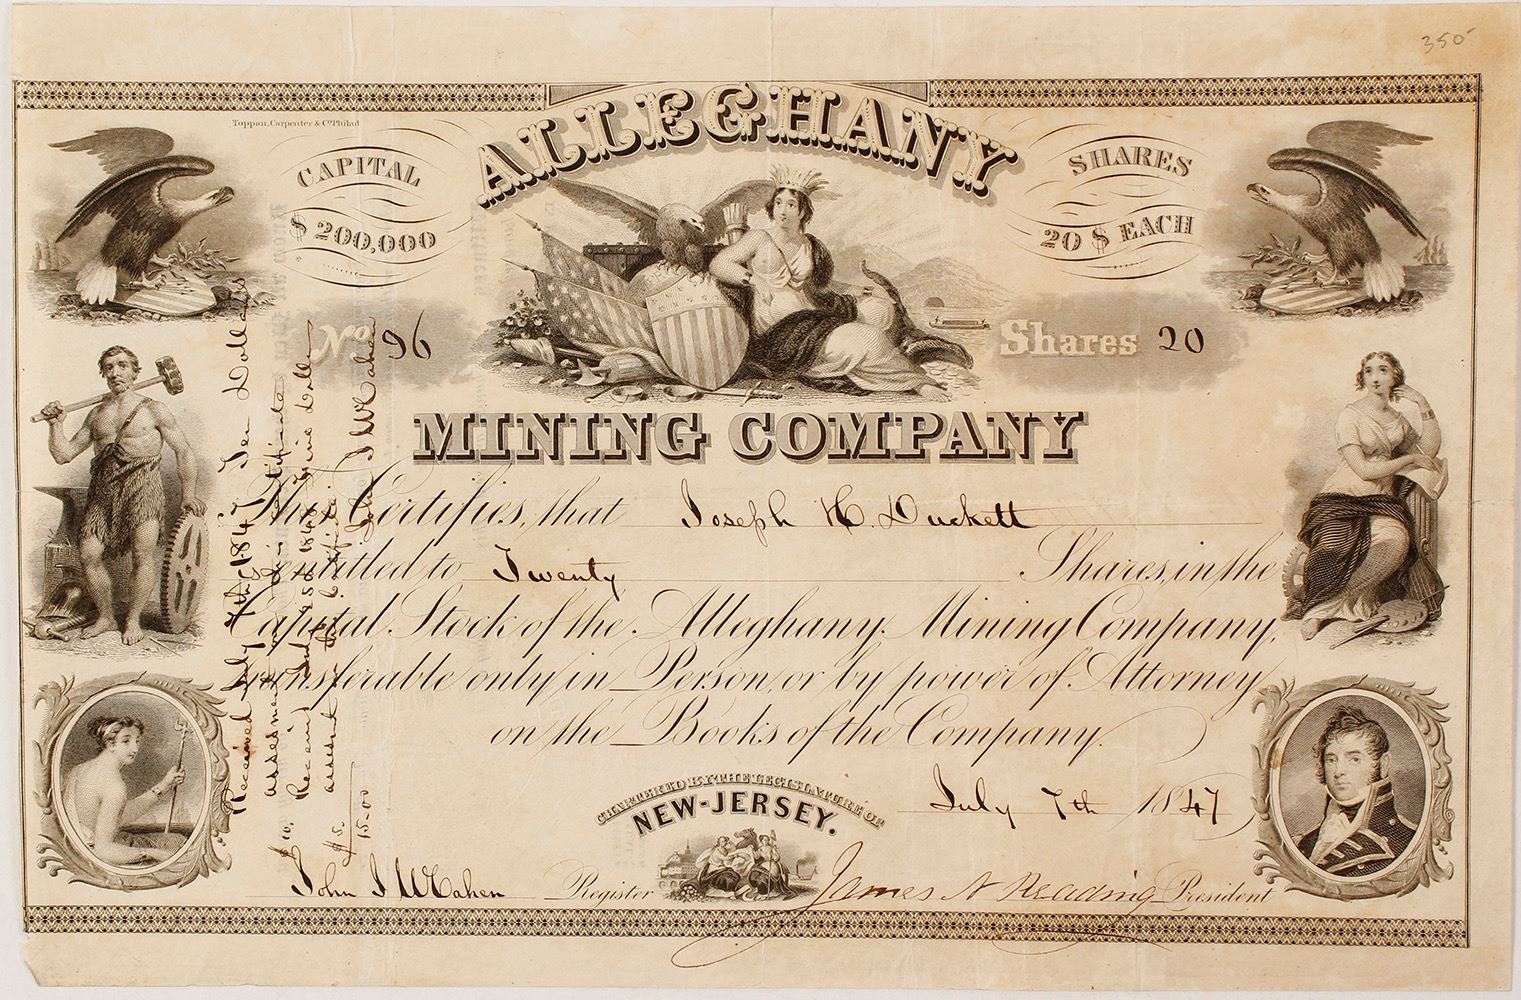 350
Toppan, Carpenter & Co. Philad.
CAPITAL
$200,000
ALLEGHANY
SHARES
20 $ EACH
No. 96
Shares 20
MINING COMPANY
This Certifies, that Joseph H. Duckett
is entitled to Twenty Shares, in the
Capital Stock of the Alleghany Mining Company,
transferable only in Person, or by power of Attorney
on the Books of the Company.
CHARTERED BY THE LEGISLATURE OF
NEW-JERSEY.
July 7th 1847
John Register
James N Reading President
Received July 7th 1847 Ten Dollars
assesment on this Certificate
$10. Received 25th 1848 Dolls
assesment on Certificate
$5. John
15.00